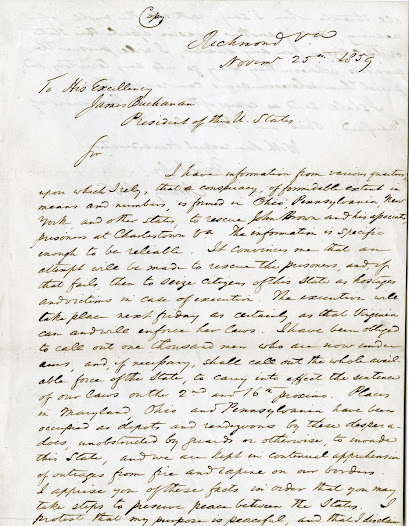 (Copy)
Richmond Va
Novemr 25th 1859
To His Excellency
James Buchanan
President of the U. States.
Sir
I have information from various quarters,
upon which I rely, that a conspiracy, of formidable extent in
means and numbers, is formed in Ohio, Pennsylvania, New
York and other states, to rescue John Brown and his associates,
prisoners at Charlestown Va. The information is specific
enough to be reliable. It convinces me that an
attempt will be made to rescue the prisoners, and if
that fails, then to seize citizens of this State as hostages
and victims in case of execution. The execution will
take place next friday as certainly as that Virginia
can and will enforce her laws. I have been obliged
to call out one thousand men who are now under
arms, and, if necessary, shall call out the whole avail-
able force of the State, to carry into effect the sentence
of our laws on the 2nd and 16th proximo. Places
in Maryland, Ohio and Pennsylvania have been
occupied as depots and rendezvous by these despera-
does, unobstructed by guards or otherwise, to invade
this State, and we are kept in continual apprehension
of outrages from fire and rapine on our borders.
I apprise you of these facts in order that you may
take steps to preserve peace between the States. I
protest that my purpose is peaceful, and that I disclaim